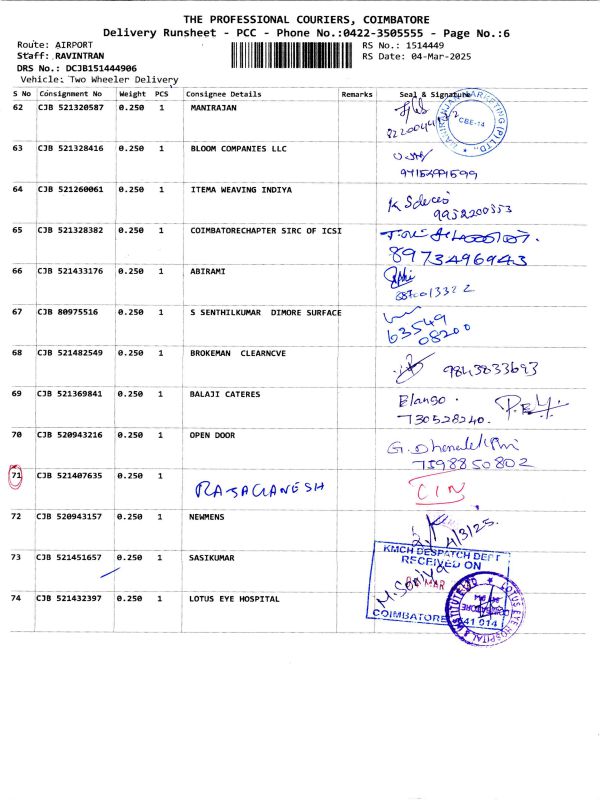 THE PROFESSIONAL COURIERS, COIMBATORE
Delivery Runsheet - PCC - Phone No.:0422-3505555 - Page No.:6
Route: AIRPORT RS No.: 1514449
Staff: RAVINTRAN RS Date: 04-Mar-2025
DRS No.: DCJB151444906
Vehicle: Two Wheeler Delivery
S No Consignment No Weight PCS Consignee Details Remarks Seal & Signature
62 CJB 521320587 0.250 1 MANIRAJAN
CBE-14
63 CJB 521328416 0.250 1 BLOOM COMPANIES LLC
64 CJB 521260061 0.250 1 ITEMA WEAVING INDIYA
9952200353
65 CJB 521328382 0.250 1 COIMBATORECHAPTER SIRC OF ICSI
8973496943
66 CJB 521433176 0.250 1 ABIRAMI
67 CJB 80975516 0.250 1 S SENTHILKUMAR DIMORE SURFACE
63549
08200
68 CJB 521482549 0.250 1 BROKEMAN CLEARNCVE
9843833693
69 CJB 521369841 0.250 1 BALAJI CATERES
Elango.
730528240.
70 CJB 520943216 0.250 1 OPEN DOOR
7598850802
71 CJB 521407635 0.250 1 RAJAGANESH CIN
72 CJB 520943157 0.250 1 NEWMENS
4/3/25.
73 CJB 521451657 0.250 1 SASIKUMAR
KMCH DESPATCH DEPT
RECEIVED ON
MAR
COIMBATORE 641 014
74 CJB 521432397 0.250 1 LOTUS EYE HOSPITAL
LOTUS EYE HOSPITAL & INSTITUTE LTD